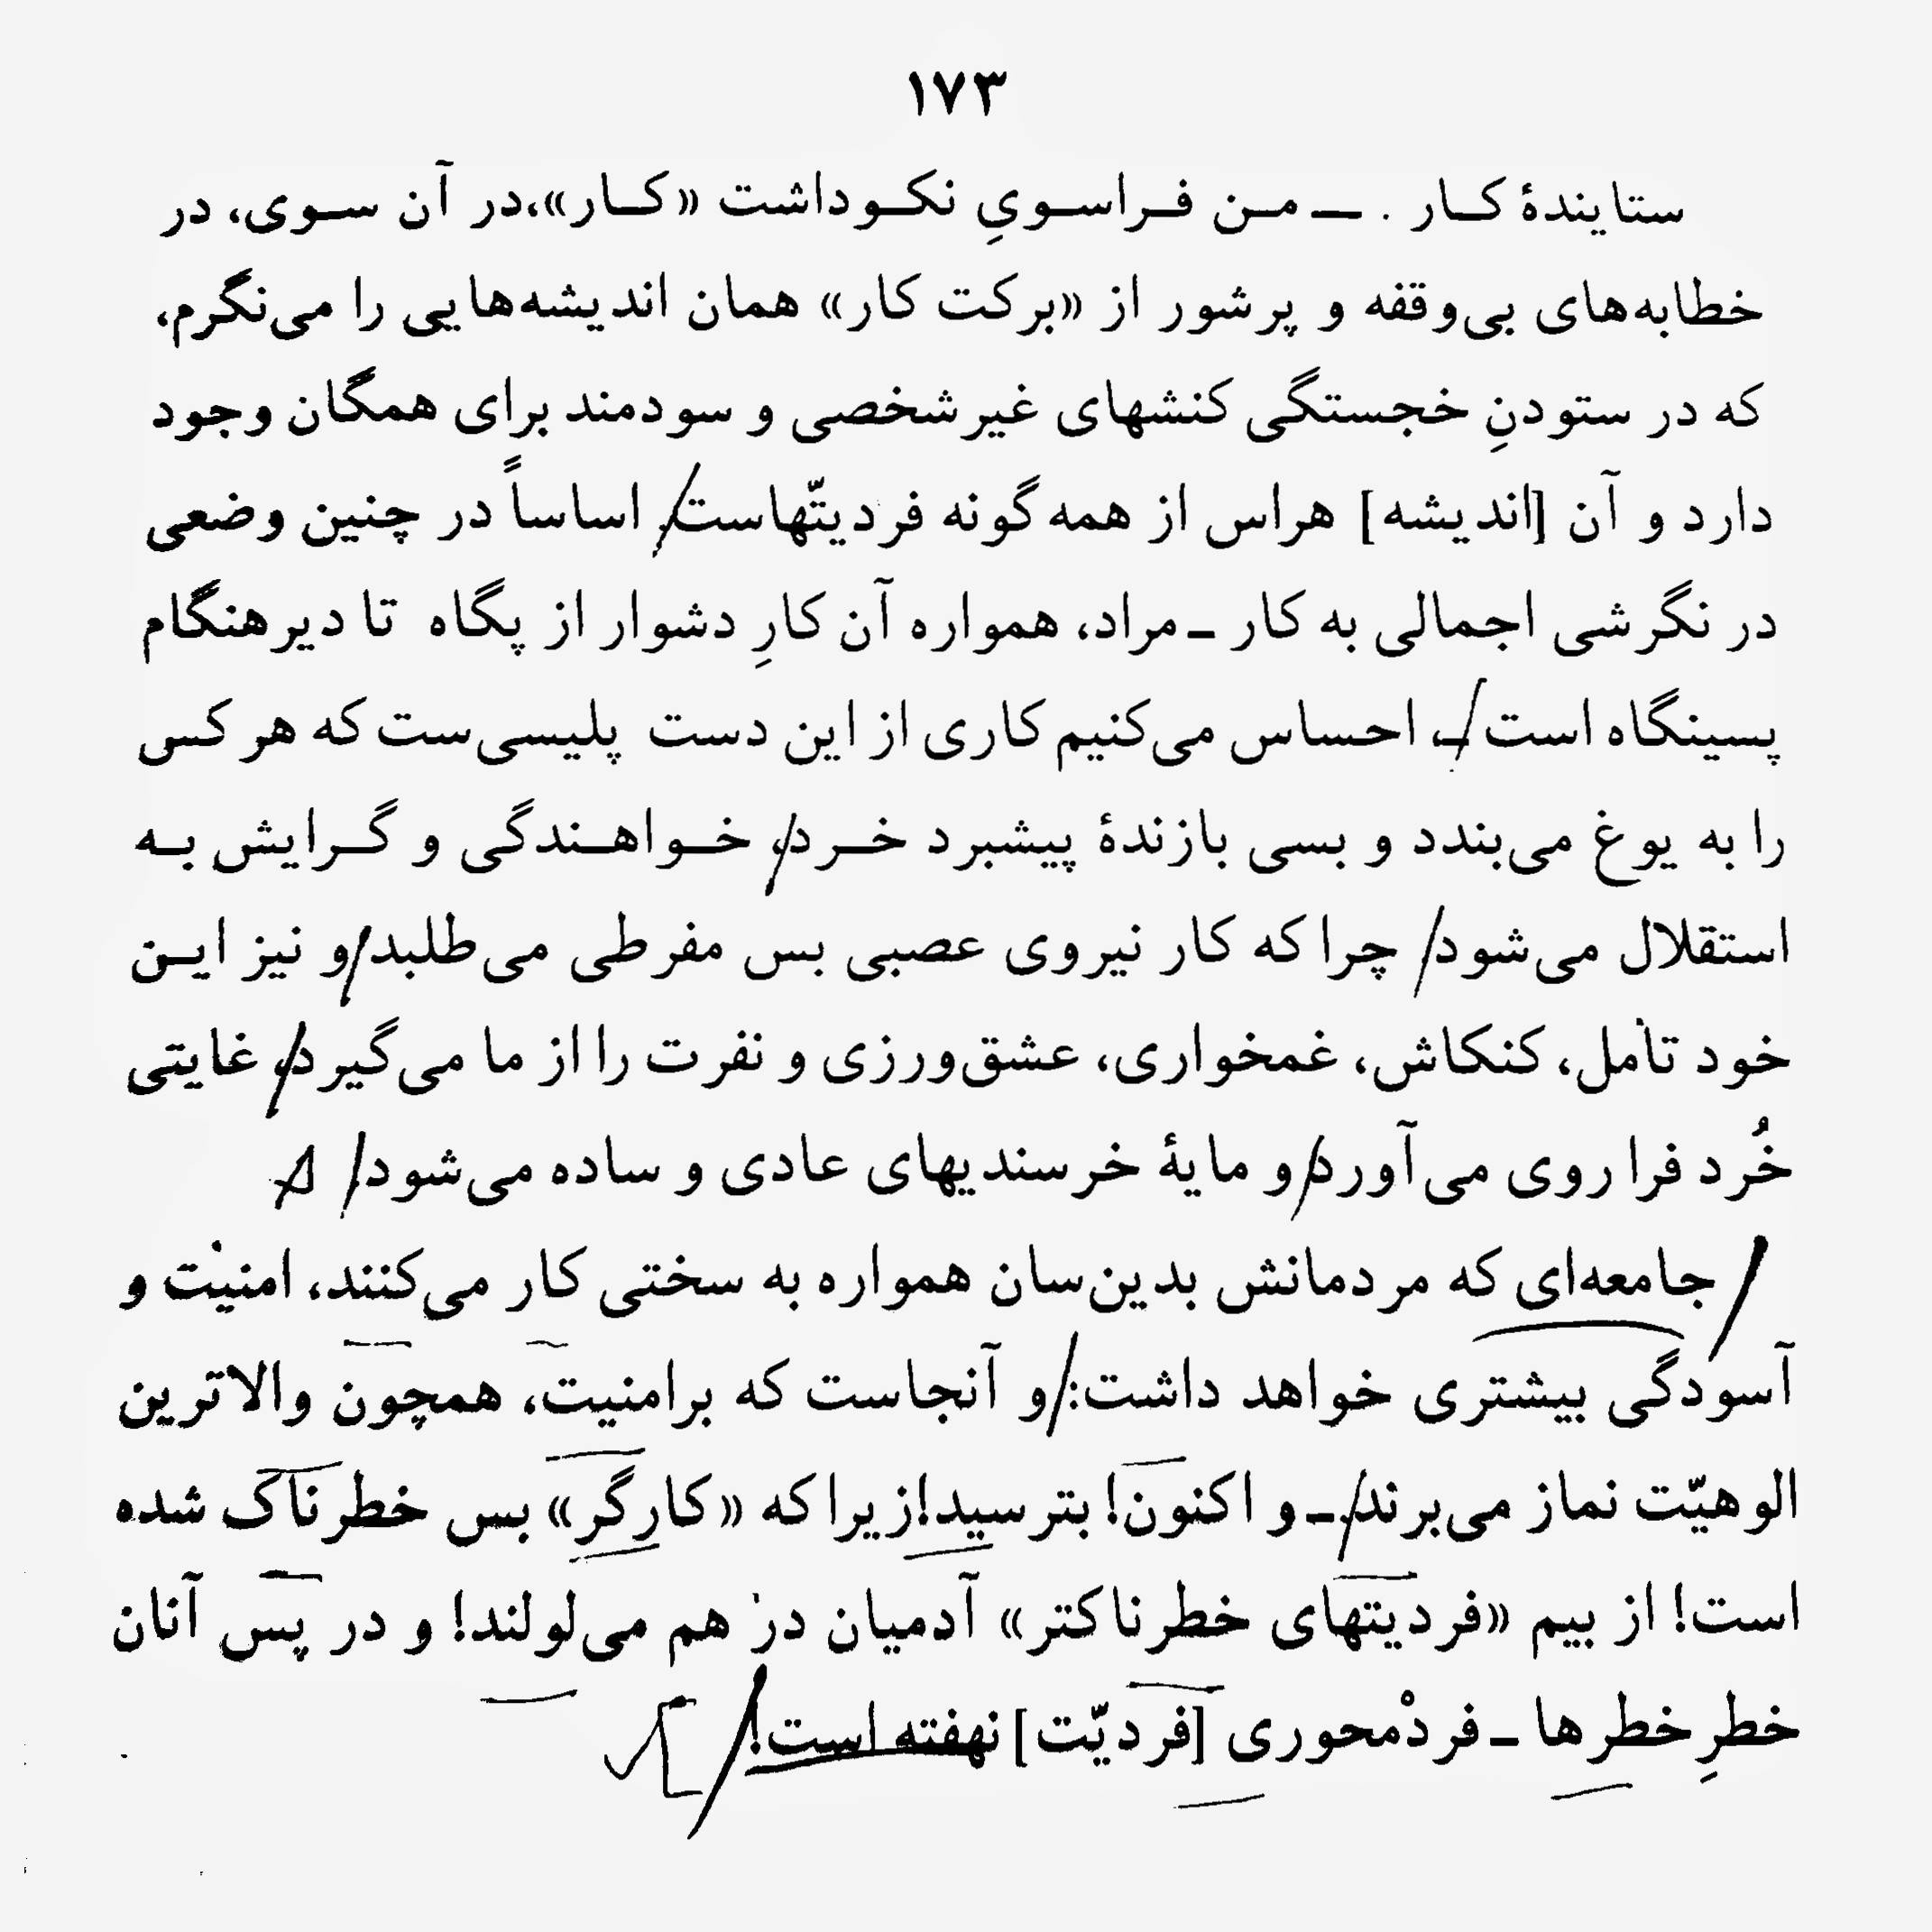 ۱۷۳
ستایندهٔ کار . — من فراسویِ نکوداشت «کار»،در آن سوی، در
خطابه‌های بی‌وقفه و پرشور از «برکت کار» همان اندیشه‌هایی را می‌نگرم،
که در ستودنِ خجستگی کنشهای غیرشخصی و سودمند برای همگان وجود
دارد و آن [اندیشه] هراس از همه گونه فردیتّهاست. اساساً در چنین وضعی
در نگرشی اجمالی به کار ـ مراد، همواره آن کارِ دشوار از پگاه تا دیرهنگام
پسینگاه است ـ، احساس می‌کنیم کاری از این دست پلیسی‌ست که هر کس
را به یوغ می‌بندد و بسی بازندهٔ پیشبرد خرد، خواهندگی و گرایش به
استقلال می‌شود/ چرا که کار نیروی عصبی بس مفرطی می‌طلبد/و نیز این
خود تأمل، کنکاش، غمخواری، عشق‌ورزی و نفرت را از ما می‌گیرد، غایتی
خُرد فرا روی می‌آورد/و مایهٔ خرسندیهای عادی و ساده می‌شود.
جامعه‌ای که مردمانش بدین‌سان همواره به سختی کار می‌کنند، امنیت و
آسودگی بیشتری خواهد داشت:/و آنجاست که برامنیت، همچون والاترین
الوهیّت نماز می‌برند. ـ و اکنون! بترسید!زیرا که «کارگر» بس خطرناک شده
است! از بیم «فردیتهای خطرناکتر» آدمیان در هم می‌لولند! و در پس آنان
خطرِ خطرِ ها ـ فردْمحوری [فردیّت] نهفته است!